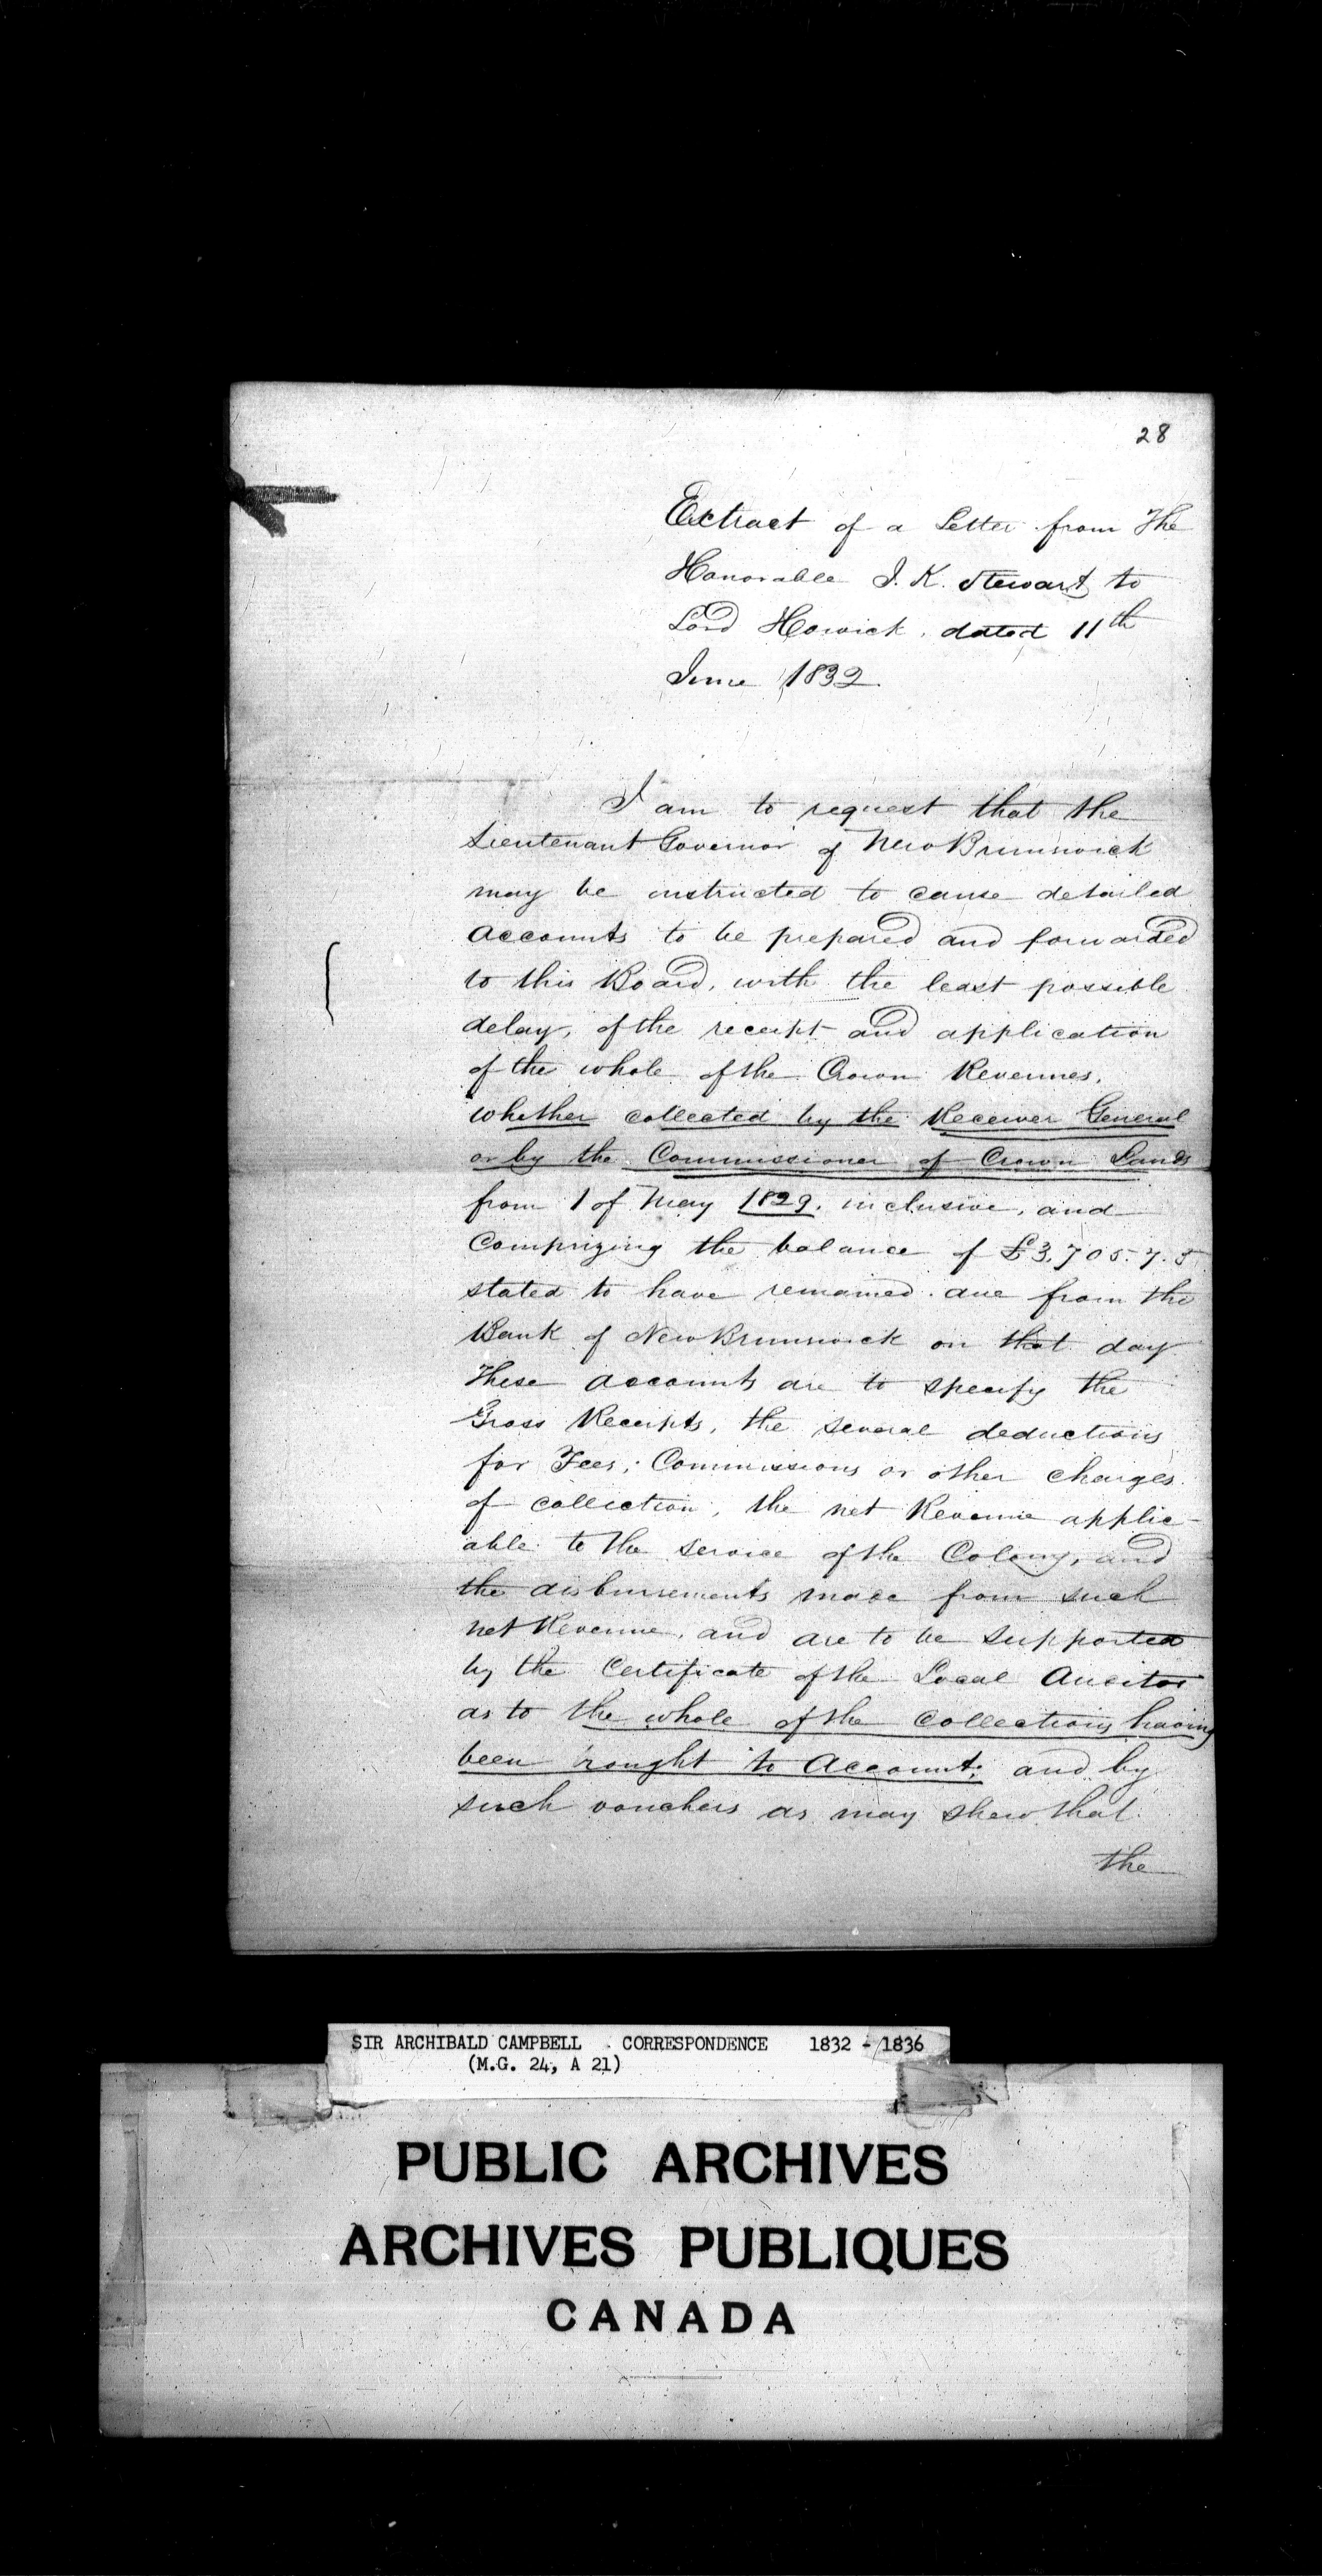 28
Extract of a Letter from The
Honorable J. K. Stewart to
Lord Howick, dated 11th
June 1832.
I am to request that the
Lieutenant Governor of New Brunswick
may be instructed to cause detailed
Accounts to be prepared and forwarded
to this Board, with the least possible
delay, of the receipt and application
of the whole of the Crown Revenues,
whether collected by the Receiver General
or by the Commissioner of Crown Lands
from 1 of May 1829. inclusive, and
Comprizing the balance of £3,705.7.5
stated to have remained due from the
Bank of New Brunswick on that day
These accounts are to specify the
Gross Receipts, the several deductions
for Fees, Commissions or other charges
of collection, the net Revenue applic-
able to the service of the Colony, and
the disbursements made from such
net Revenue, and are to be supported
by the Certificate of the Local Auditor
as to the whole of the Collections having
been rought to Account; and by
such vouchers as may shew that
the
SIR ARCHIBALD CAMPBELL - CORRESPONDENCE 1832 - 1836
(M.G. 24, A 21)
PUBLIC ARCHIVES
ARCHIVES PUBLIQUES
CANADA